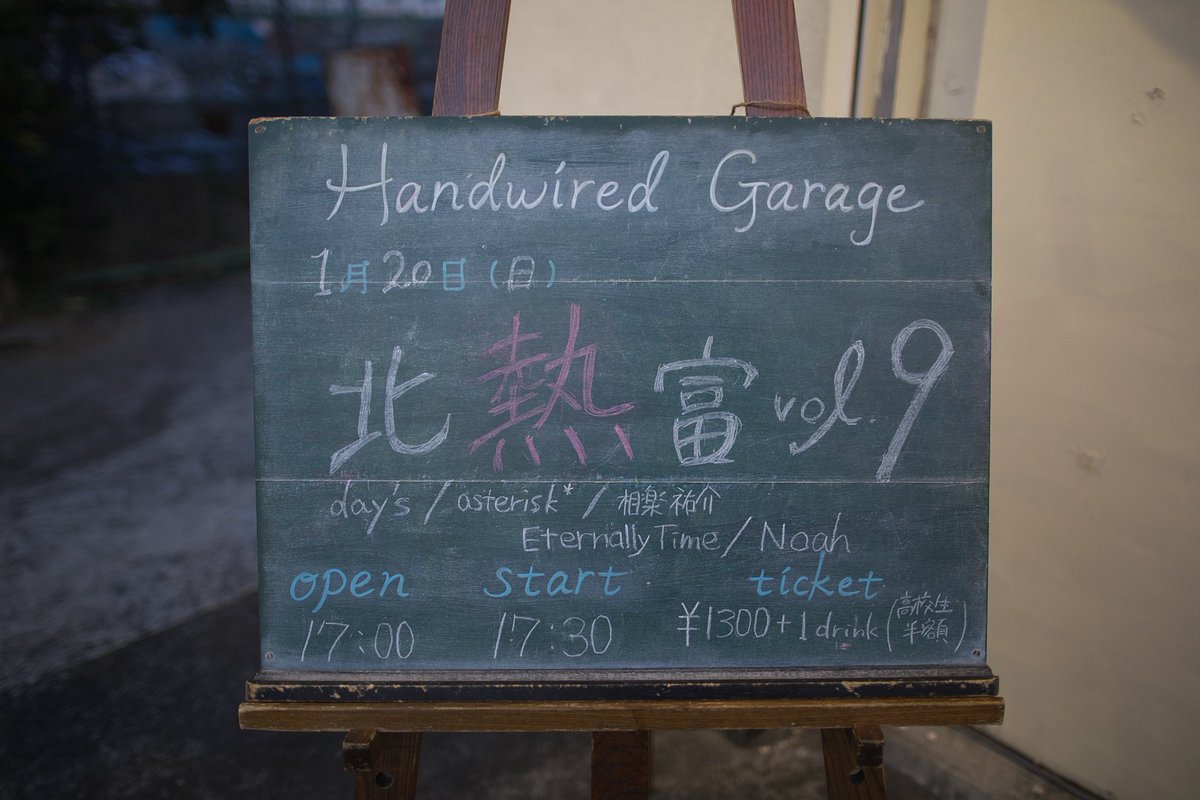 Handwired Garage
1月20日(日)
北熱富 vol.9
day's / asterisk* / 相楽祐介
Eternally Time / Noah
open start ticket
17:00 17:30 ¥1300+1drink (高校生半額)